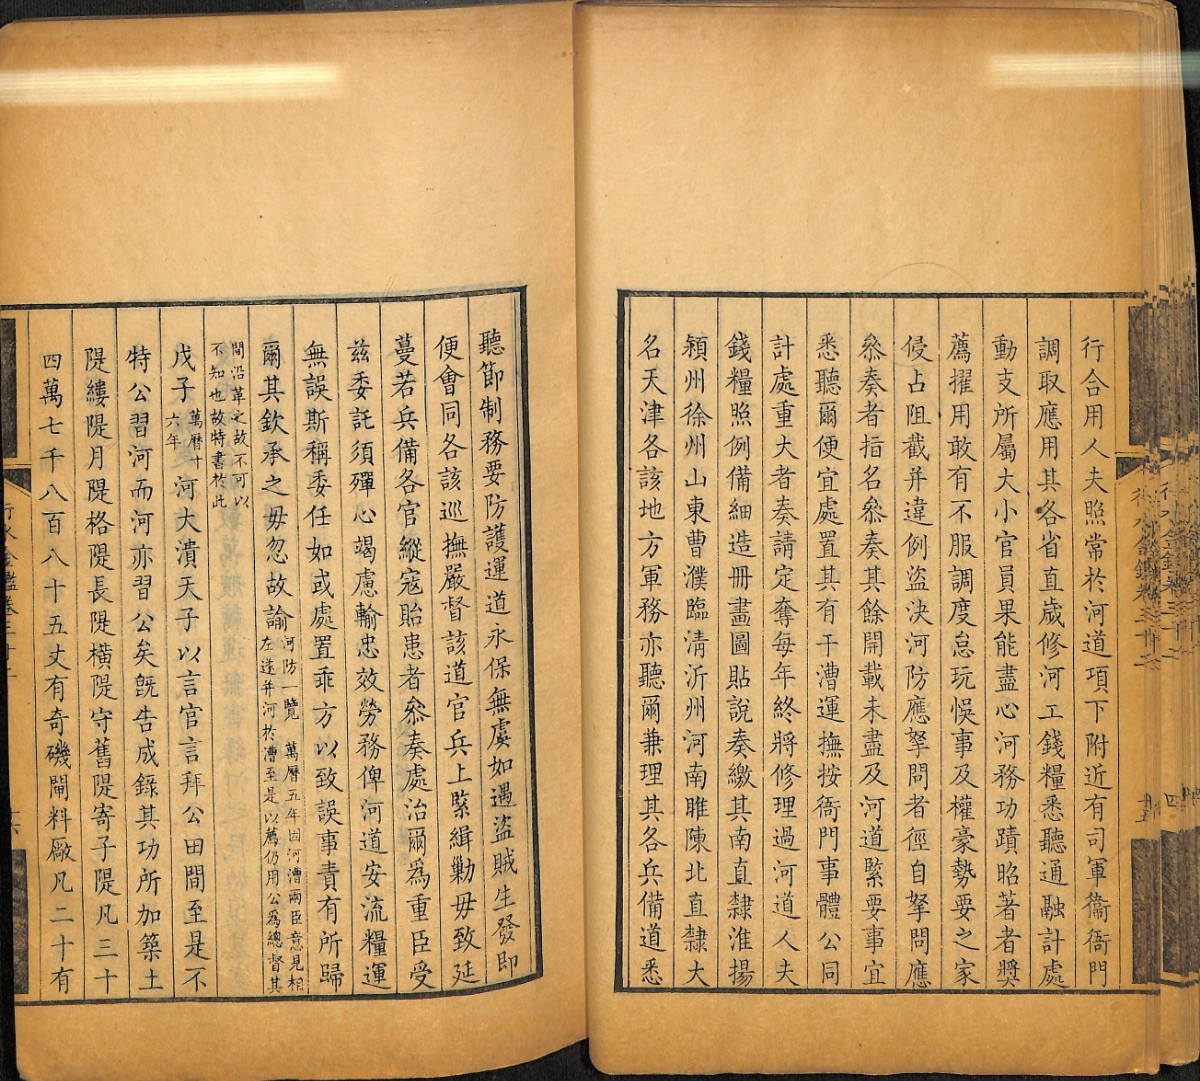 行合用人夫照常於河道項下附近有司軍衞衙門
調取應用其各省直歲修河工錢糧悉聽通融計處
動支所屬大小官員果能盡心河務功蹟昭著者獎
薦擢用敢有不服調度怠玩悞事及權豪勢要之家
侵占阻截并違例盜決河防應拏問者徑自拏問應
叅奏者指名叅奏其餘開載未盡及河道緊要事宜
悉聽爾便宜處置其有干漕運撫按衙門事體公同
計處重大者奏請定奪每年終將修理過河道人夫
錢糧照例備細造冊畫圖貼說奏繳其南直隸淮揚
潁州徐州山東曹濮臨清沂州河南睢陳北直隸大
名天津各該地方軍務亦聽爾兼理其各兵備道悉
聽節制務要防護運道永保無虞如遇盜賊生發即
便會同各該巡撫嚴督該道官兵上緊緝勦毋致延
蔓若兵備各官縱寇貽患者叅奏處治爾爲重臣受
茲委託須殫心竭慮輸忠效勞務俾河道安流糧運
無誤斯稱委任如或處置乖方以致誤事責有所歸
爾其欽承之毋忽故諭河防一覽 萬曆五年因河漕兩臣意見相
左遂并河於漕至是以薦仍用公爲總督其
間沿革之故不可以
不知也故特書於此
戊子萬曆十
六年河大潰天子以言官言拜公田間至是不
特公習河而河亦習公矣旣告成錄其功所加築土
隄縷隄月隄格隄長隄橫隄守舊隄寄子隄凡三十
四萬七千八百八十五丈有奇磯閘料廠凡二十有
行水金鑑卷三十二